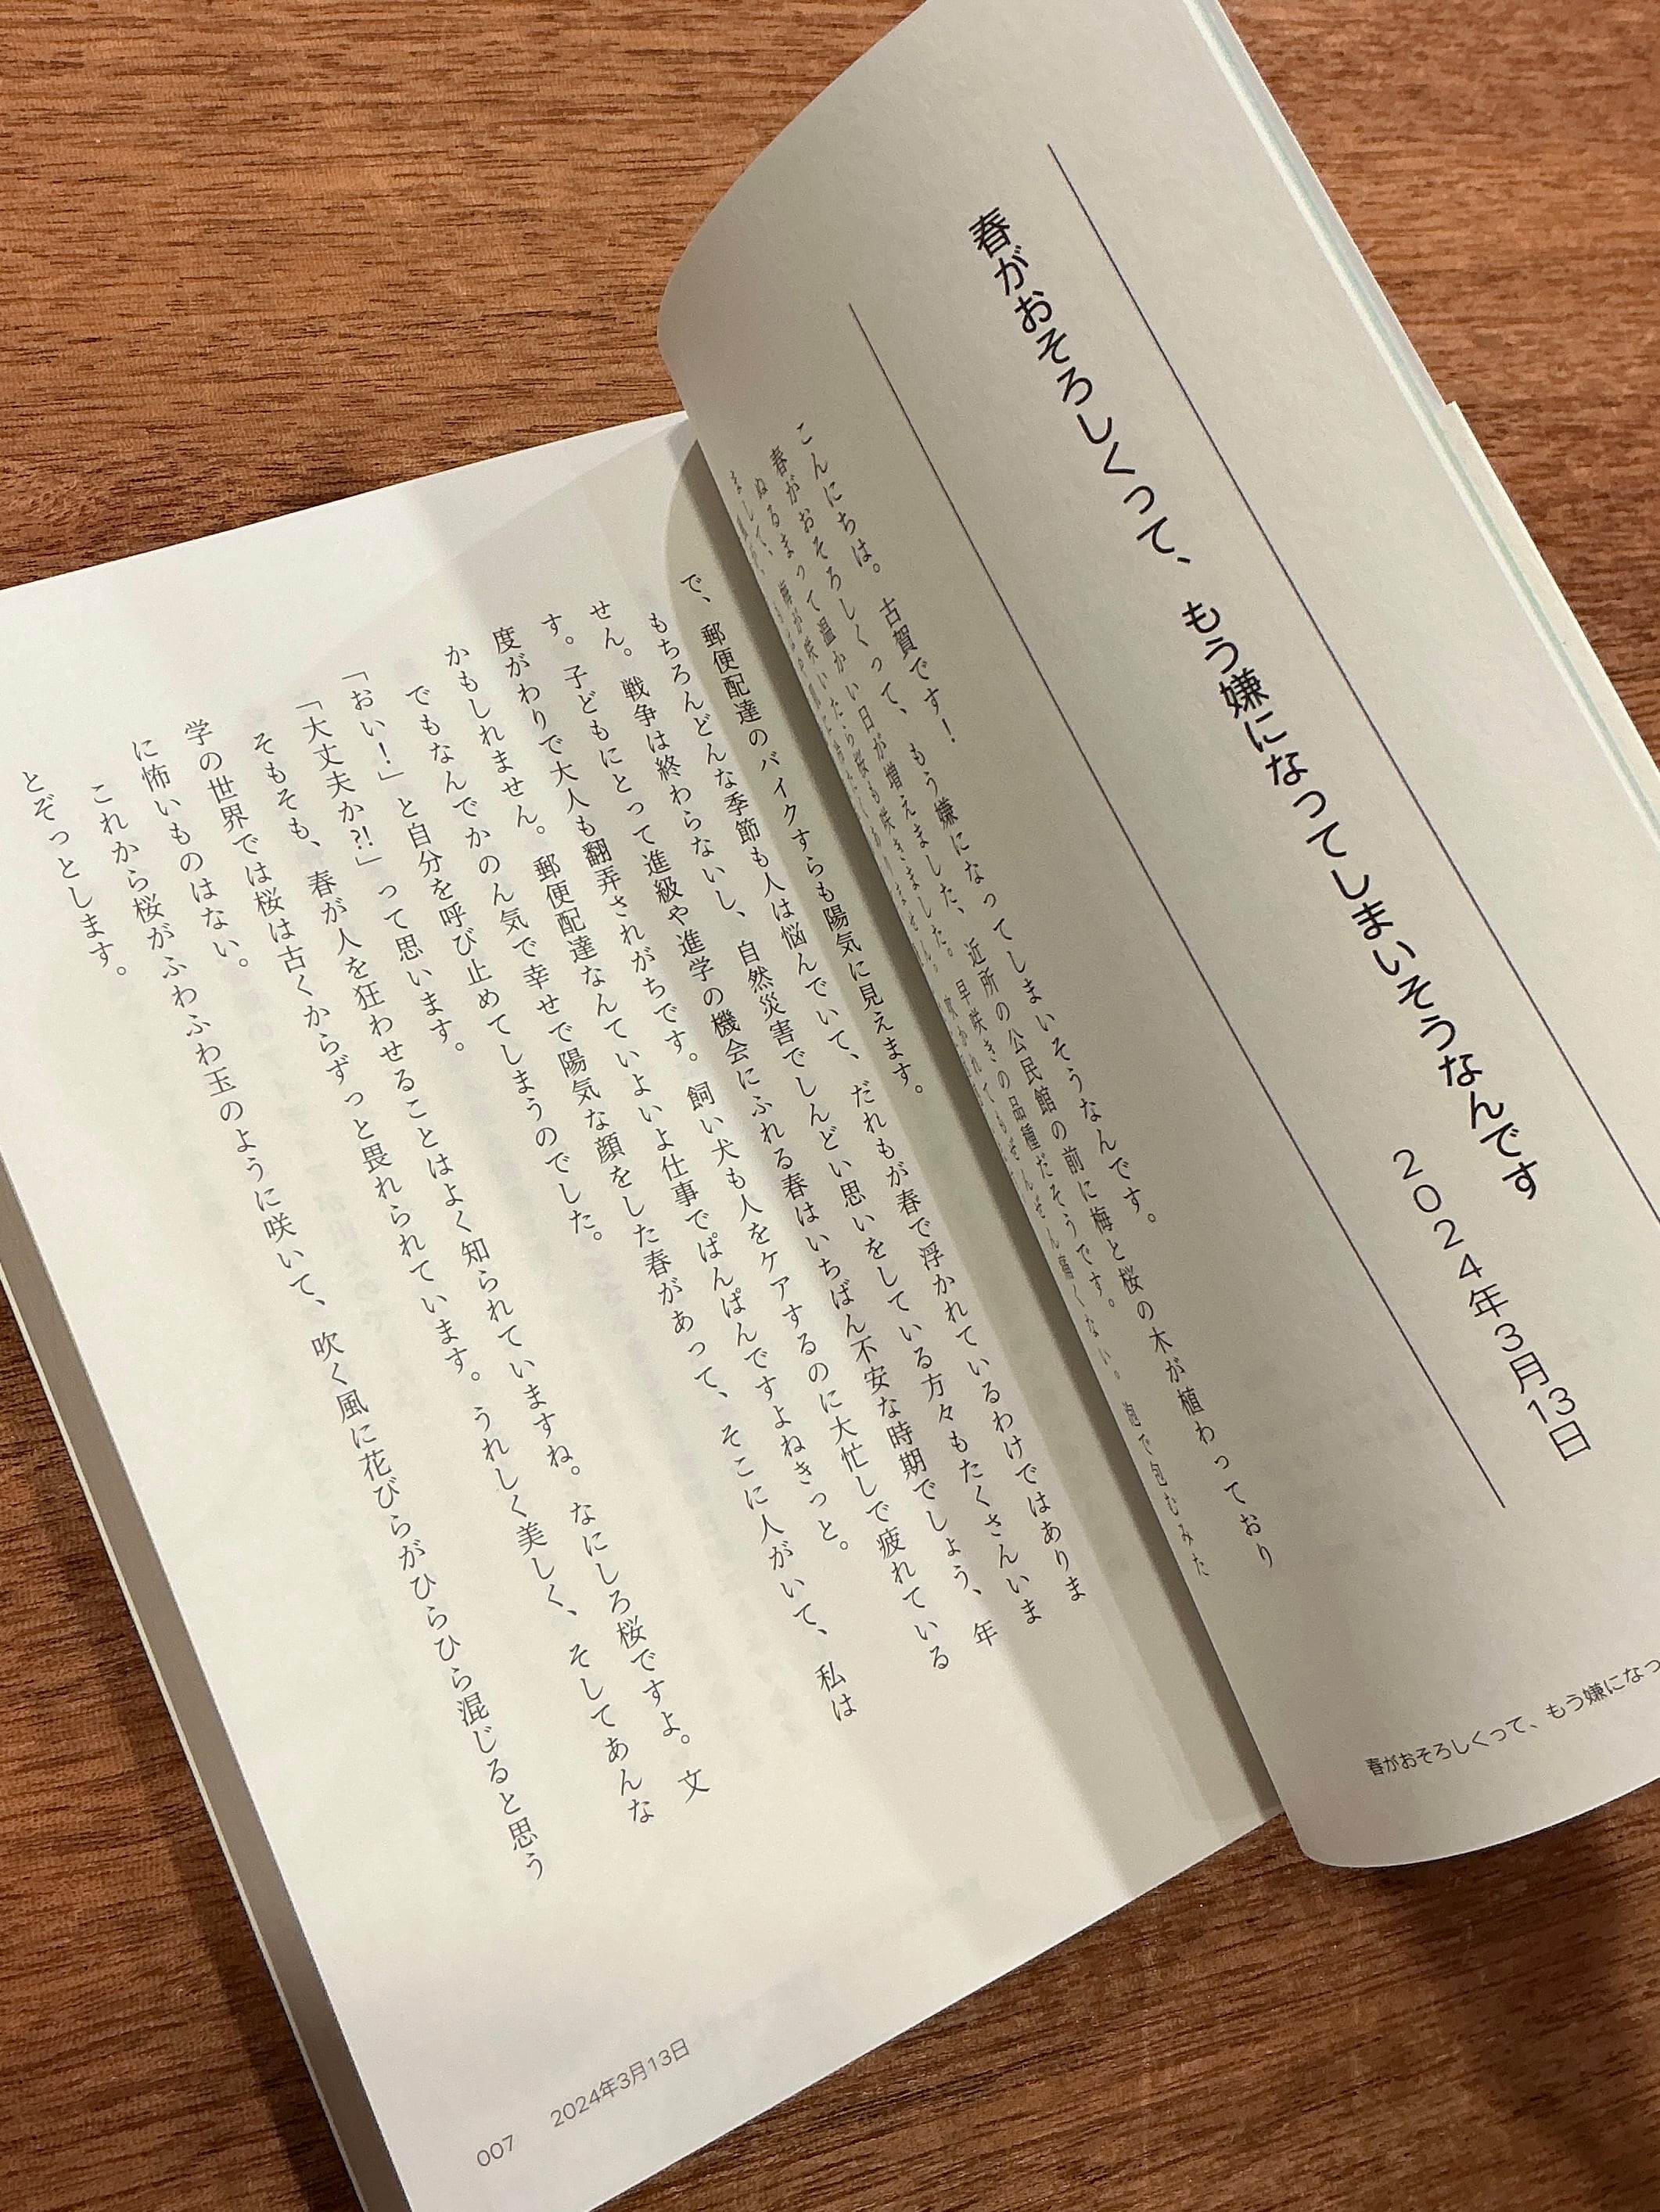 春がおそろしくって、もう嫌になってしまいそうなんです
2024年3月13日
こんにちは。古賀です！
春がおそろしくって、もう嫌になってしまいそうなんです。
ぬるまって温かい日が増えました、近所の公民館の前に梅と桜の木が植わっており
まして、梅が咲いたら桜も咲きました。早咲きの品種だそうです。
春がおそろしくって、もう嫌になっ
で、郵便配達のバイクすらも陽気に見えます。
もちろんどんな季節も人は悩んでいて、だれもが春で浮かれているわけではありま
せん。戦争は終わらないし、自然災害でしんどい思いをしている方々もたくさんいま
す。子どもにとって進級や進学の機会にふれる春はいちばん不安な時期でしょう、年
度がわりで大人も翻弄されがちです。飼い犬も人をケアするのに大忙しで疲れている
かもしれません。郵便配達なんていよいよ仕事でぱんぱんですよねきっと。
でもなんでかのん気で幸せで陽気な顔をした春があって、そこに人がいて、私は
「おい！」と自分を呼び止めてしまうのでした。
「大丈夫か?!」って思います。
そもそも、春が人を狂わせることはよく知られていますね。なにしろ桜ですよ。文
学の世界では桜は古くからずっと畏れられています。うれしく美しく、そしてあんな
に怖いものはない。
これから桜がふわふわ玉のように咲いて、吹く風に花びらがひらひら混じると思う
とぞっとします。
007 2024年3月13日